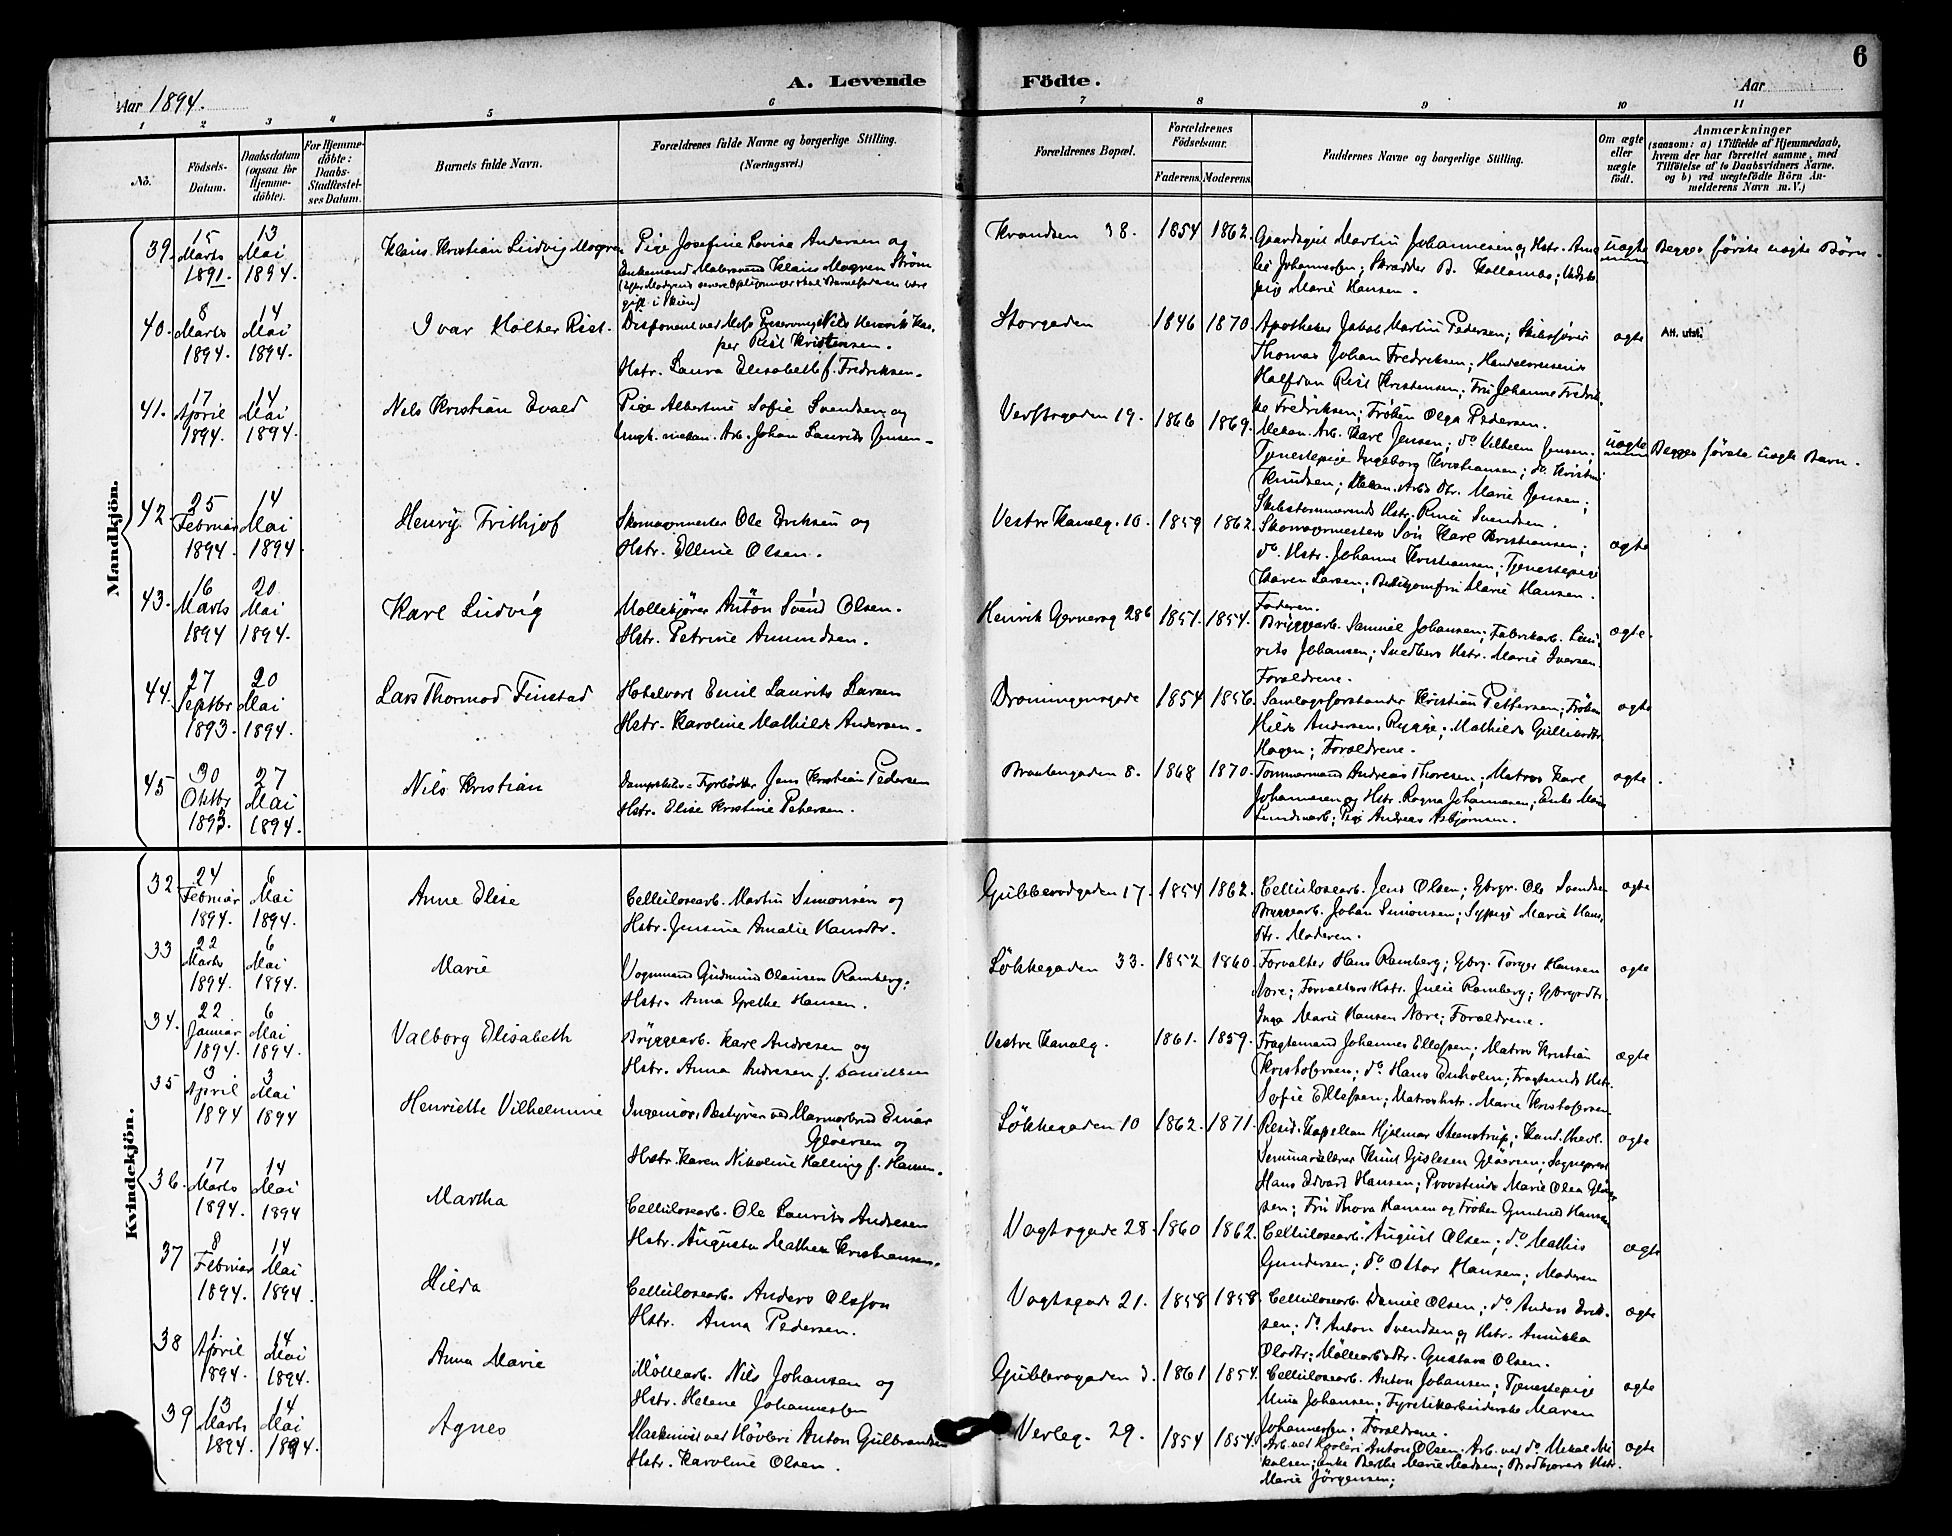 6
Aar 1894.
A. Levende Födte.
Aar
1 2 3 4 5 6 7 8 9 10 11
No.
Födsels-Datum.
Daabsdatum (ogsaa for Hjemme-döbte).
For Hjemme-döbte: Daabs-Stadfæstel-ses Datum.
Barnets fulde Navn.
Forældrenes fulde Navne og borgerlige Stilling.
(Næringsvei.)
Forældrenes Bopæl.
Forældrenes Födselsaar.
Faderens. Moderens.
Faddernes Navne og borgerlige Stilling.
Om ægte eller uægte födt.
Anmærkninger
(saasom: a) i Tilfælde af Hjemmedaab, hvem der har forrettet samme, med Tilföielse af to Daabsvidners Navne. og b) ved uægtefödte Börn Anmelderens Navn m. V.)
Mandkjön.
39. 15 Marts 1891. 13 Mai 1894. Klaus Kristian Ludvig Mogren
Pige Josefine Lovisa Andersen og
Enkemand Matersvend Klaus Mogren Ström
gift i Skien)
38. 1854 1862.
Gaardsgut Martin Johannesen og Hstr.
pige Marie Hansen.
uægte Begges förste uægte Börn.
40. 8 Marts 1894. 14 Mai 1894. Ivar Holter Rist.
per Rist Kristensen.
Hstr. Laura Elisabeth f. Fredriksen.
Storgaden 1846 1870
Apotheker Jakob Martin Pedersen; Skibsförer
Thomas Johan Fredriksen; Handelsreisende
Halfdan Rist Kristensen; Fru Johanne Fredrik-
ke Fredriksen; Fröken Olga Pedersen.
ægte Att. utst.
41. 17 April 1894. 14 Mai 1894. Nils Kristian Evald
Pige Albertine Sofie Svendsen og
Ungk. mekan. Arb. Johan Laurits Jensen.
Verftsgaden 19. 1866 1869.
Mekan. Arb. Karl Jensen; do Vilhelm Jensen;
Tjenestepige Ingeborg Kristiansen; do Kristine
Knudsen; Mekan. Arbs Dtr. Marie Jensen;
Skibstömmermds Hstr. Rine Svendsen.
uægte Begges förste uægte Barn.
42. 25 Februar 1894. 14 Mai 1894. Henry Frithjof
Skomagermester Ole Eriksen og
Hstr. Elline Olsen.
Vestre Kanalg. 10. 1859 1862.
Skomagermesters Sön Karl Kristiansen;
do. Hstr. Johanne Kristiansen; Tjenestepige
Karen Larsen; Marie Hansen.
Faderen.
ægte
43. 16 Marts 1894 20 Mai 1894. Karl Ludvig
Mollekjörer Anton Svend Olsen.
Hstr. Petrine Amundsen.
Henrik Gernersg 286 1851. 1854.
Bryggearb. Samuel Johansen; Fabrikarb. Lau-
rits Johansen; Snedkers Hstr. Marie Iversen.
Forældrene.
ægte.
44. 27 Septbr 1893. 20 Mai 1894. Lars Thormod Finstad
Hotelvært Emil Laurits Larsen
Hstr. Karoline Mathilde Andersen.
Dronningensgade 1854 1856.
Samlagsforstander Kristian Pettersen; Fröken
Hilda Andersen, Rygge; Mathilde Gulliksdtr
Hagen; Forældrene.
ægte
45 30 Oktbr 1893. 27 Mai 1894. Nils Kristian
Dampskibs-Fyrböter Jens Kristian Pedersen
Hstr. Elise Kristine Petersen.
8. 1868 1870.
Tommermand Andreas Thoresen; Matros Karl
Johannesen og Hstr. Ragna Johannesen; Enke
Pige Andrea Asbjörnsen.
ægte.
Kvindekjön.
32 24 Februar 1894. 6 Mai 1894. Anne Elise
Cellulosearb. Martin Simonsen og
Hstr. Jensine Amalie Hansdtr.
Gubberodgaden 17. 1854 1862.
Cellulosearb. Jens Olsen; Gbrgr. Ole Svendsen
Bryggearb. Johan Simonsen; Sypige Marie Hans-
dtr. Moderen.
ægte
33 22 Marts 1894. 6 Mai 1894. Marie
Vognmand Gudmund Olausen Ramberg;
Hstr. Anna Grethe Hansen.
Lökkegaden 33. 1852 1860.
Forvalter Hans Ramberg; Gbrg. Torger Hansen
Nore; Forvalters Hstr. Julie Ramberg; Gbrgsdtr.
Inga Marie Hansen Nore; Forældrene.
ægte
34. 22 Januar 1894. 6 Mai 1894. Valborg Elisabeth
Bryggearb. Karl Andresen og
Hstr. Anna Andresen f. Danielsen
Vestre Kanalg. 1861. 1859.
Fragtemand Johannes Ellefsen; Matros Kristian
Kristofersen; do Hans Enholm; Fragtemds Hstr.
Sofie Ellefsen; Matroshstr. Marie Kristofersen
ægte
35 3 April 1894 3 Mai 1894 Henriette Vilhelmine
Ingeniör, Bestyrer ved Marmorbrud Einar
Glöersen og
Hstr. Karen Nikoline Kalling f. Hansen.
Lökkegaden 10 1862. 1871.
Resid. Kapellan Hjalmar Steenstrup; Kand. theol.
Seminarielærer Knut Gislesen Glöersen; Sogneprest
Hans Edvard Hansen; Provstinde Marie Olea Glöer-
sen; Fru Thora Hansen og Fröken Gunhild Hansen
ægte
36. 17 Marts 1894. 14 Mai 1894 Martha
Cellulosearb. Ole Laurits Andresen
Hstr. Augusta Mathea Kristiansen.
Vogtsgade 28. 1860 1862.
Cellulosearb. August Olsen; do Mathis
Gundersen; do Ottar Hansen; Moderen
ægte
37 8 Februar 1894. 14 Mai 1894. Hilda
Cellulosearb. Anders Olsson
Hstr. Anna Pedersen.
Vogtsgade 21. 1858 1858.
Cellulosearb. Daniel Olsen; do Anders Erik-
sen; do Anton Svendsen og Hstr. Annikka
Olsdtr; Möllearbsdtr. Gustava Olsen.
ægte
38 1 April 1894. 14 Mai 1894. Anna Marie
Möllearb. Nils Johansen og
Hstr. Helene Johannesen
3. 1861 1854.
Cellulosearb. Anton Johansen; Tjenestepige
Mina Johansen; Fyrstikarbeiderske Maren
Johannesen; Forældrene.
ægte
39 13 Marts 1894. 14 Mai 1894. Agnes
Maskinist ved Hövleri Anton Gulbrandsen
Hstr. Karoline Olsen.
Verleg. 29. 1854 1854.
Arb. ved Hövleri Anton Olsen. Arb. ved do. Mikal Mi-
kalsen; enke Berthe Marie Madsen; Brödkjörers Hstr.
Marie Jörgensen;
ægte